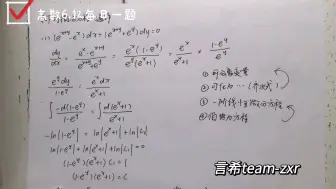 高数6.12每日一题
(1) (e^{x+y}-e^x)dx+(e^{x+y}+e^y)dy=0
dy/dx = (e^x-e^{x+y})/(e^{x+y}+e^y) = e^x(1-e^y)/(e^y(e^x+1)) = e^x/(e^x+1) × (1-e^y)/e^y
e^y dy/(1-e^y) = e^x dx/(e^x+1)
① 可分离变量
② 可化为…(齐次式)
③ 一阶线性微分方程
④ 伯努利方程
∫ -d(1-e^y)/(1-e^y) = ∫ d(e^x+1)/(e^x+1)
-ln|1-e^y| = ln|e^x+1|+ln|C₁|
ln|1-e^y|+ln|e^x+1|+ln|C₁|=0
(1-e^y)(e^x+1)C₁=1
(1-e^y)(e^x+1)=C
言希team-zxr